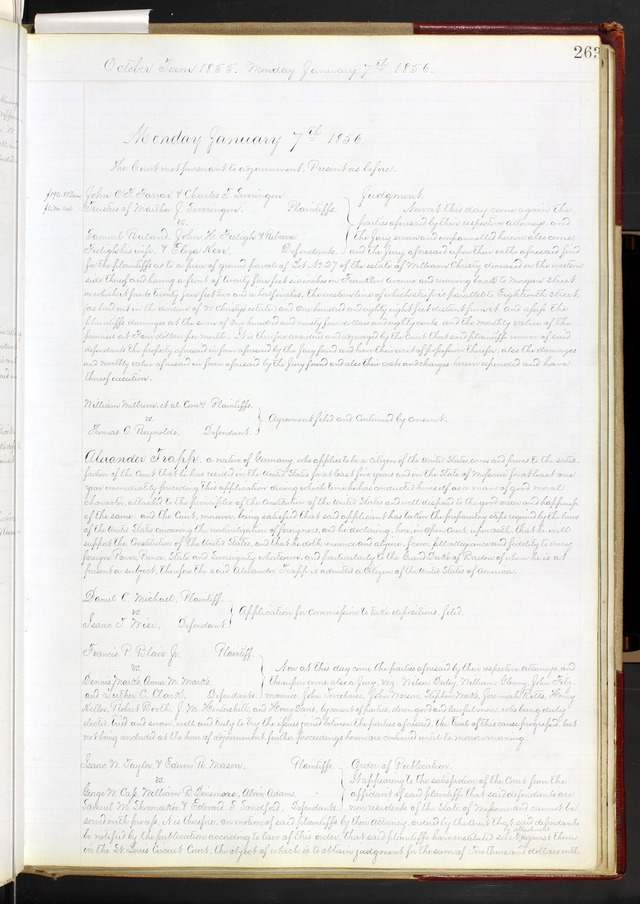 263
October Term 1855. Monday January 7th 1856.
Monday January 7th 1856
The Court met pursuant to adjournment. Present as before.
John O'F. Farrar & Charles T. Sweringen } Judgment.
Trustees of Martha J. Sweringen, Plaintiffs. Now at this day come again the
vs. parties aforesaid by their respective attorneys, and
Samuel Rutland, John H. Freligh & Rebecca the Jury sworn and impannelled herein also comes
Freligh his wife, & Eliza Kerr, Defendants. and the Jury aforesaid upon their oaths aforesaid find
for the plaintiffs as to a piece of ground parcel of Lot No 27 of the estate of William Christy deceased on the western
side thereof and having a front of twenty four feet six inches on Franklin avenue and running back to Morgan Street
on which it fronts twenty four feet two and a half inches, the western line of which strip is parallel to Eighteenth Street
(as laid out in the division of Wm Christy's estate) and one hundred and eighty eight feet distant from it, and assess the
plaintiffs damages at the sum of One hundred and ninety four dollars and eighty cents, and the monthly value of the
premises at Four dollars per month. It is therefore considered and adjudged by the Court that said plaintiffs recover of said
defendants the property aforesaid in form aforesaid by the Jury found and have their writ of possession therefor, also the damages
and monthly value aforesaid in form aforesaid by the Jury found and also their costs and charges herein expended and have
thereof execution.
William Milburn, et al. Plaintiffs }
vs. Agreement filed and Continued by consent.
Thomas C. Reynolds, Defendant
Alexander Trapp, a native of Germany, who applies to be a citizen of the United States, comes and proves to the satis-
faction of the Court that he has resided in the United States for at least five years and in the State of Missouri for at least one
year immediately preceding this application, during which time he has conducted himself as a man of good moral
character, attached to the principles of the Constitution of the United States and well disposed to the good order and happiness
of the same: and the Court, moreover, being satisfied that said applicant has taken the preparatory steps required by the laws
of the United States concerning the naturalization of foreigners, and he declaring, here, in open Court, upon oath, that he will
support the Constitution of the United States, and that he doth renounce and abjure, forever, all allegiance and fidelity to every
foreign Power, Prince, State and Sovereignty whatsoever, and particularly to the Grand Duke of Baden of whom he is at
present a subject, therefore the said Alexander Trapp is admitted a Citizen of the United States of America.
Daniel C. Michael, Plaintiff }
vs. Application for commission to take depositions, filed.
Isaac T. Wise, Defendant
Francis P. Blair Jr. Plaintiff }
vs. Now at this day come the parties aforesaid by their respective attorneys, and
Dennis Marks, Anna M. Marks thereupon come also a Jury, viz: Nelson Oxley, William Glenny, John Fitz
and Luther C. Clark. Defendants. maurice, John Torelinus, John Noison, Stephen Marks, Jeremiah Pitts, Henry
Keller, Robert Borth, J. M. Hentershitt, and Henry Sans, by consent of parties, eleven good and lawful men, who being duly
elected, tried and sworn, well and truly to try the issues joined between the parties aforesaid, the trial of this cause progressed, but
not being concluded at the hour of adjournment further proceedings herein are continued until to morrow morning.
Isaac W. Taylor & Edwin R. Mason, Plaintiffs. } Order of Publication.
vs. It appearing to the satisfaction of the Court from the
George W. Cass, William B. Dinsmore, Alvin Adams, affidavit of said plaintiffs that said defendants are
Samuel M. Shoemaker & Edward S. Sandford, Defendants. non residents of the State of Missouri and cannot be
served with process, it is therefore, on motion of said plaintiffs by their attorney, ordered by the Court that said defendants
be notified by the publication according to law of this order, that said plaintiffs have instituted suit by attachment against them
in the St. Louis Circuit Court, the object of which is to obtain judgment for the sum of Two thousand dollars with